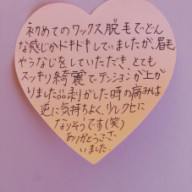 初めてのワックス脱毛でどん
な感じかドキドキしていましたが、眉毛
やうなじをしていただき、とても
スッキリ綺麗でテンションが上が
りました 剥がした時の痛みは
逆に気持ちよく、リレクセに
なりそうです(笑)
ありがとうござ
いました